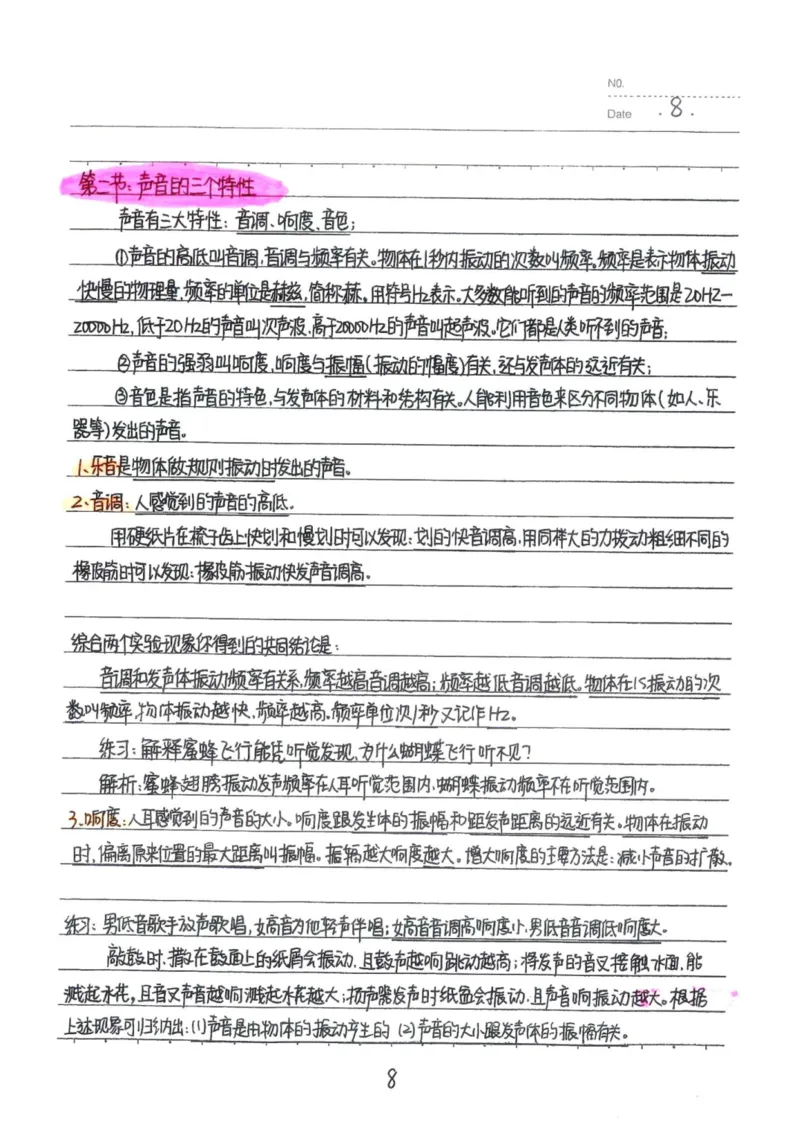 NO.
Date .8.
第二节:声音的三个特性
声音有三大特性:音调、响度、音色;
①声音的高低叫音调,音调与频率有关。物体在1秒内振动的次数叫频率。频率是表示物体振动
快慢的物理量,频率的单位是赫兹,简称赫。用符号Hz表示。大多数能听到的声音的频率范围是20HZ—
20000Hz,低于20Hz的声音叫次声波,高于20000Hz的声音叫超声波。它们都是人类听不到的声音;
②声音的强弱叫响度,响度与振幅(振动的幅度)有关,还与发声体的远近有关;
③音色是指声音的特色,与发声体的材料和结构有关。人能利用音色来区分不同物体(如人、乐
器等)发出的声音。
1、乐音是物体做规则振动时发出的声音。
2、音调:人感觉到的声音的高低。
用硬纸片在梳子齿上快划和慢划时可以发现:划的快音调高,用同样大的力拨动粗细不同的
橡皮筋时可以发现:橡皮筋振动快发声音调高。
综合两个实验现象你得到的共同结论是:
音调和发声体振动频率有关系,频率越高音调越高;频率越低音调越低。物体在1S振动的次
数叫频率,物体振动越快,频率越高。频率单位次/秒又记作Hz。
练习:解释蜜蜂飞行能凭听觉发现,为什么蝴蝶飞行听不见?
解析:蜜蜂翅膀振动发声频率在人耳听觉范围内,蝴蝶振动频率不在听觉范围内。
3、响度:人耳感觉到的声音的大小。响度跟发生体的振幅和距发声距离的远近有关。物体在振动
时,偏离原来位置的最大距离叫振幅。振幅越大响度越大。增大响度的主要方法是:减小声音的扩散。
练习:男低音歌手放声歌唱,女高音为他轻声伴唱;女高音音调高响度小,男低音音调低响度大。
敲鼓时,撒在鼓面上的纸屑会振动,且鼓声越响跳动越高;将发声的音叉接触水面,能
溅起水花,且音叉声音越响溅起水花越大;扬声器发声时纸盆会振动,且声音响振动越大。根据
上述现象可归纳出:(1)声音是由物体的振动产生的 (2)声音的大小跟发声体的振幅有关。
8